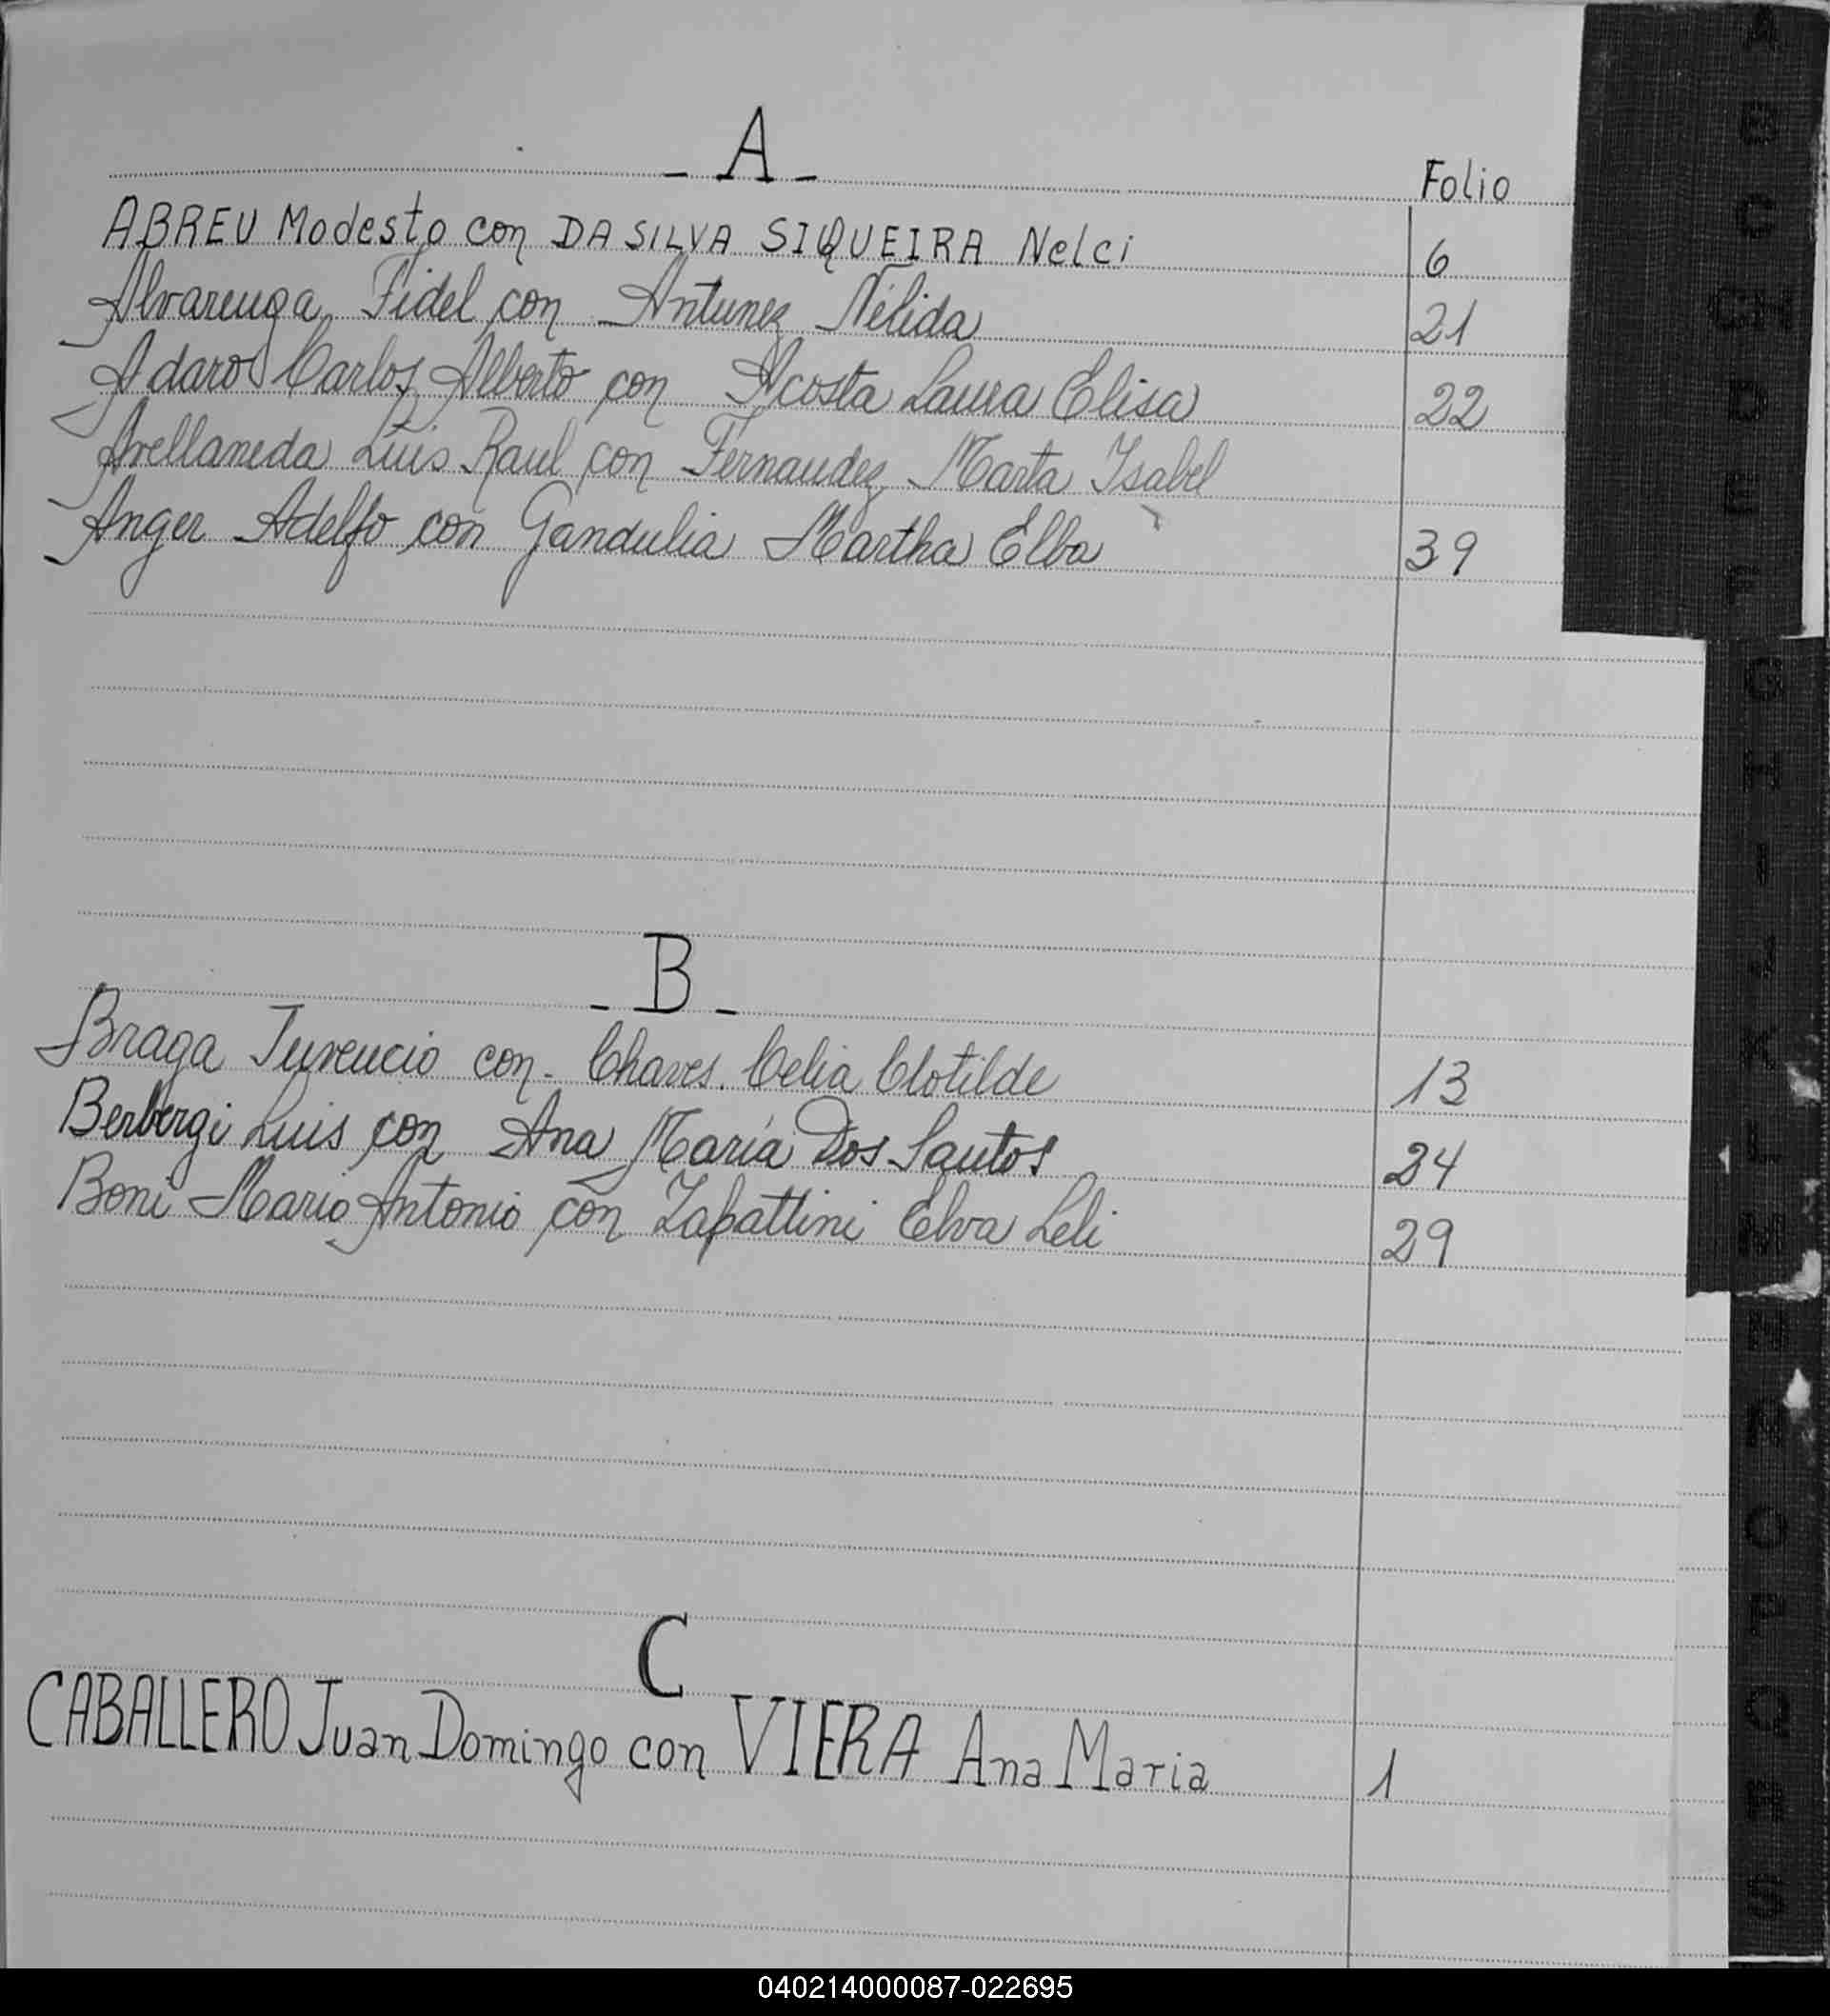 - A -
Folio
ABREU Modesto con DA SILVA SIQUEIRA Nelci 6
Alvarenga Fidel con Antunez Nélida 21
Adaro Carlos Alberto con Acosta Laura Elisa 22
Avellaneda Luis Raul con Fernandez Marta Isabel
Anger Adelfo con Gandulia Martha Elba 39
- B -
Braga Juvencio con - Chaves. Celia Clotilde 13
Berbergi Luis con Ana María Dos Santos 24
Boni Mario Antonio con Zapattini Elva Leli 29
C
CABALLERO Juan Domingo con VIERA Ana Maria 1
040214000087-022695